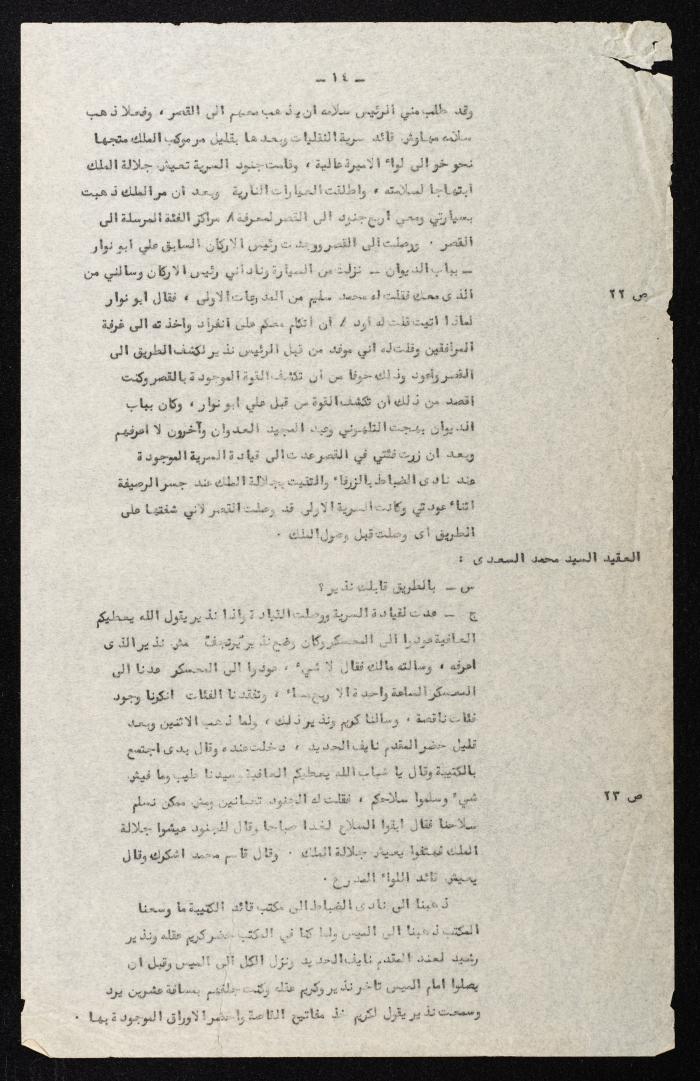 ــ ١٤ ــ
وقد طلب مني الرئيس سلامه ان يذهب معهم الى القصر ، وفعلا ذهب
سلامه قائد سرية النقليات وبعدها بقليل مر موكب الملك متجها
نحو خو الى لواء الاميرة عالية ، وقامت جنود السرية تعيش جلالة الملك
ابتهاجا لسلامته ، واطلقت العيارات النارية وبعد ان مر الملك ذهبت
بسيارتي ومعي اربع جنود الى القصر لمعرفة / مراكز الفئة المرسلة الى
القصر . ووصلت الى القصر ووجدت رئيس الاركان السابق علي ابو نوار
ــ بباب الديوان ــ نزلت من السيارة وناداني رئيس الاركان وسالني من
الذى معك فقلت له محمد سليم من المدرعات الاولى ، فقال ابو نوار
ص ٢٢
لماذا اتيت قلت له اود / ان اتكلم معكم على انفراد واخذته الى غرفة
المرافقين وقلت له اني موفد من قبل الرئيس نذير لكشف الطريق الى
القصر واعود وذلك خوفا من ان تكشف القوة الموجودة بالقصر وكنت
اقصد من ذلك ان تكشف القوة من قبل علي ابو نوار ، وكان بباب
الديوان بهجت التلهوني وعبد المجيد العدوان وآخرون لا اعرفهم
وبعد ان زرت فئتي في القصر عدت الى قيادة السرية الموجودة
عند نادى الضباط بالزرقاء والتقيت بجلالة الملك عند جسر الرصيفة
اثناء عودتي وكانت السرية الاولى قد وصلت القصر لاني شفتها على
الطريق اى وصلت قبل وصول الملك .
العقيد السيد محمد السعدى :
س ــ بالطريق قابلك نذير ؟
ج ــ عدت لقيادة السرية ووصلت القيادة واذا نذير يقول الله يعطيكم
العافية عودوا الى المعسكر وكان وضع نذير "يرتجف" مش نذير الذى
اعرفه ، وسالته مالك فقال لا شيء ، عودوا الى المعسكر عدنا الى
المعسكر الساعة واحدة الا ربع مساء ، وتفقدنا الفئات انكرنا وجود
فئات ناقصة ، وسالنا كريم ونذير ذلك ، ولما ذهب الاثنين وبعد
قليل حضر المقدم نايف الحديد ، دخلت عنده وقال بدى اجتمع
بالكتيبة وقال يا شباب الله يعطيكم العافية سيدنا طيب وما فيش
شيء وسلموا سلاحكم ، فقلت له الجنود تعبانين ومش ممكن نسلم
ص ٢٣
سلاحنا فقال ابقوا السلاح لغدا صباحا وقال للجنود عيشوا جلالة
الملك فهتفوا يعيش جلالة الملك . وقال قاسم محمد اشكرك وقال
يعيش قائد اللواء المدرع .
ذهبنا الى نادى الضباط الى مكتب قائد الكتيبة ما وسعنا
المكتب ذهبنا الى الميس ولما كنا في المكتب حضر كريم عقله ونذير
رشيد لعند المقدم نايف الحديد ونزل الكل الى الميس وقبل ان
يصلوا امام الميس تاخر نذير وكريم عقله وكنت خلفهم بمسافة عشرين يرد
وسمعت نذير يقول لكريم خذ مفاتيح القاصة واحضر الاوراق الموجودة بها .